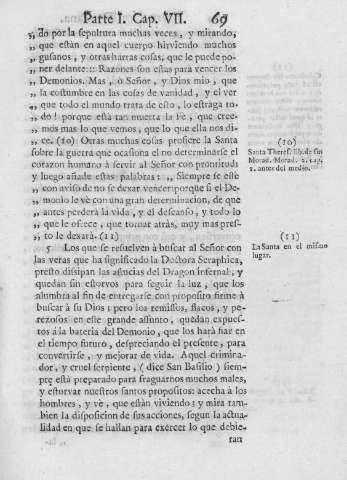 Parte I. Cap. VII. 69
„ do por la sepultura muchas veces, y mirando,
„ que estàn en aquel cuerpo hirviendo muchos
„ gusanos, y otras harras cosas, que le puede po-
„ ner delante:: Razones son estas para vencer los
„ Demonios. Mas, ò Señor, y Dios mio, que
„ la costumbre en las cosas de vanidad, y el ver
„ que todo el mundo trata de esto, lo estraga to-
„ do! porque està tan muerta la Fè, que cree-
„ mos mas lo que vemos, que lo que ella nos di-
„ ce. (10) Otras muchas cosas profiere la Santa
sobre la guerra que ocasiona el no determinarse el
corazon humano à servir al Señor con prontitud;
y luego añade estas palabras: „ Siempre se estè
„ con aviso de no se dexar vencer; porque si el De-
„ monio le vè con una gran determinacion, de que
„ antes perderà la vida, y el descanso, y todo lo
„ que le ofrece, que tornar atràs, muy mas pres-
„ to le dexarà. (11)
5 Los que se resuelven à buscar al Señor con
las veras que ha significado la Doctora Seraphica,
presto dissipan las astucias del Dragon infernal, y
quedan sin estorvos para seguir la luz, que los
alumbra al fin de entregarse con proposito firme à
buscar à su Dios: pero los remissos, flacos, y pe-
rezosos en este grande assunto, quedan expues-
tos à la bateria del Demonio, que los harà fiar en
el tiempo futuro, despreciando el presente, para
convertirse, y mejorar de vida. Aquel crimina-
dor, y cruel serpiente, (dice San Basilio) siem-
pre està preparado para fraguarnos muchos males,
y estorvar nuestros santos propositos: acecha à los
hombres, y vè, que estàn viviendo: y mira tam-
bien la disposicion de sus acciones, segun la actua-
lidad en que se hallan para exercer lo que debie-
ran
(10)
Santa Theres. ubi
Morad. Morad. 2. cap.
1. antes del medio.
(11)
La Santa en el mismo
lugar.